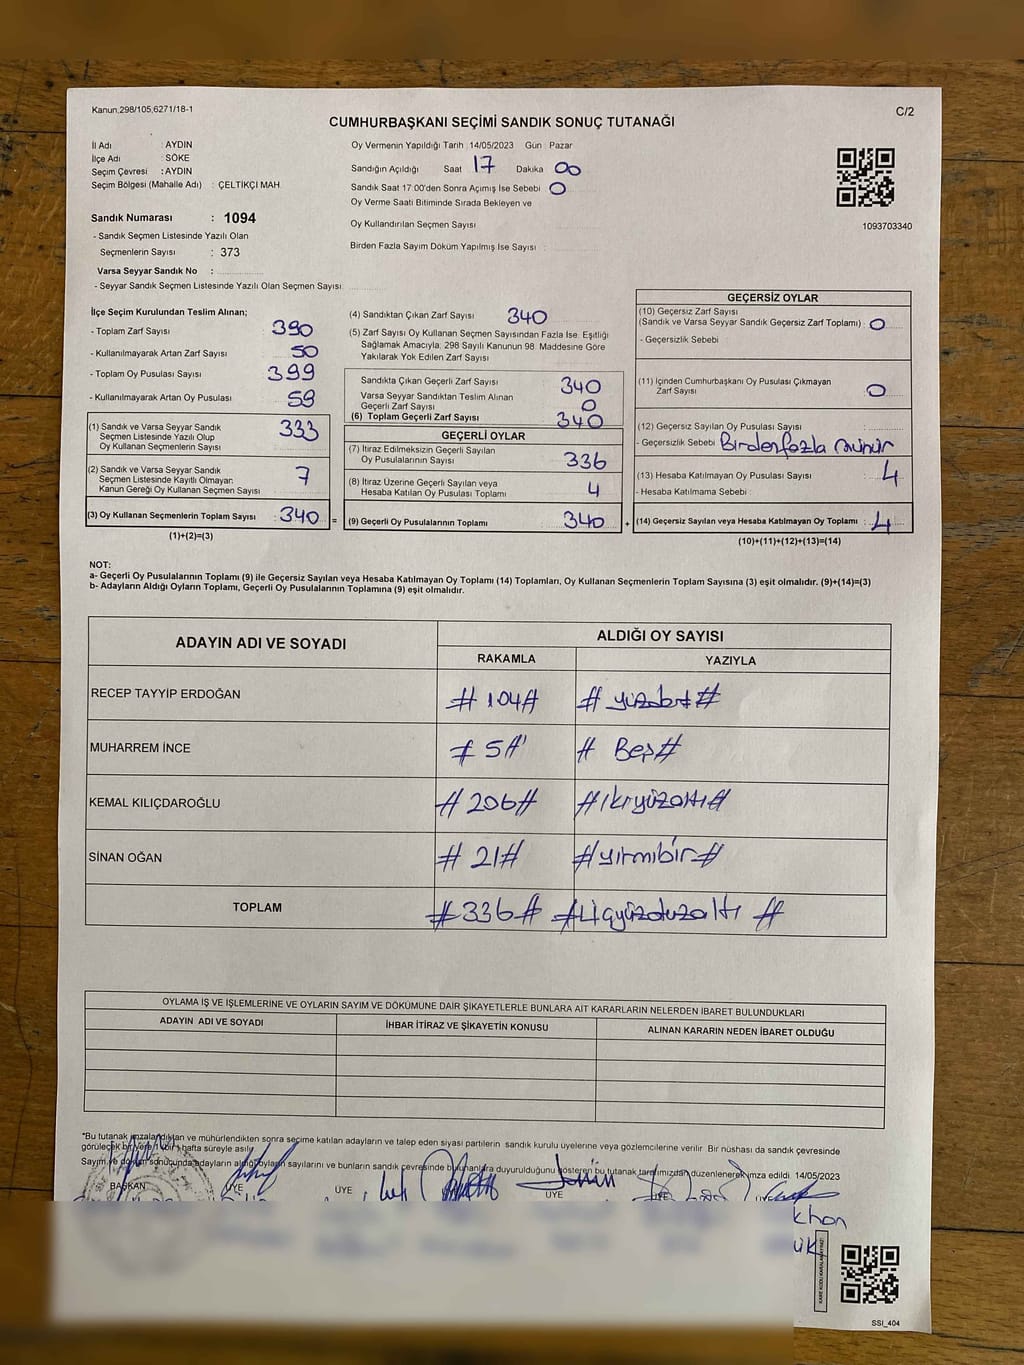 Kanun,298/105,6271/18-1
C/2
CUMHURBAŞKANI SEÇİMİ SANDIK SONUÇ TUTANAĞI
İl Adı : AYDIN
İlçe Adı : SÖKE
Seçim Çevresi : AYDIN
Seçim Bölgesi (Mahalle Adı) : ÇELTİKÇİ MAH
Sandık Numarası : 1094
- Sandık Seçmen Listesinde Yazılı Olan
Seçmenlerin Sayısı : 373
Varsa Seyyar Sandık No :
- Seyyar Sandık Seçmen Listesinde Yazılı Olan Seçmen Sayısı
Oy Vermenin Yapıldığı Tarih 14/05/2023 Gün : Pazar
Sandığın Açıldığı Saat 17 Dakika 00
Sandık Saat 17:00'den Sonra Açımış İse Sebebi 0
Oy Verme Saati Bitiminde Sırada Bekleyen ve
Oy Kullandırılan Seçmen Sayısı
Birden Fazla Sayım Döküm Yapılmış İse Sayısı :
1093703340
İlçe Seçim Kurulundan Teslim Alınan;
- Toplam Zarf Sayısı 390
- Kullanılmayarak Artan Zarf Sayısı 50
- Toplam Oy Pusulası Sayısı 399
- Kullanılmayarak Artan Oy Pusulası 59
(1) Sandık ve Varsa Seyyar Sandık
Seçmen Listesinde Yazılı Olup
Oy Kullanan Seçmenlerin Sayısı 333
(2) Sandık ve Varsa Seyyar Sandık
Seçmen Listesinde Kayıtlı Olmayan
Kanun Gereği Oy Kullanan Seçmen Sayısı 7
(3) Oy Kullanan Seçmenlerin Toplam Sayısı : 340 =
(1)+(2)=(3)
(4) Sandıktan Çıkan Zarf Sayısı 340
(5) Zarf Sayısı Oy Kullanan Seçmen Sayısından Fazla İse, Eşitliği
Sağlamak Amacıyla; 298 Sayılı Kanunun 98. Maddesine Göre
Yakılarak Yok Edilen Zarf Sayısı
Sandıkta Çıkan Geçerli Zarf Sayısı 340
Varsa Seyyar Sandıktan Teslim Alınan
Geçerli Zarf Sayısı 0
(6) Toplam Geçerli Zarf Sayısı 340
GEÇERLİ OYLAR
(7) İtiraz Edilmeksizin Geçerli Sayılan
Oy Pusulalarının Sayısı 336
(8) İtiraz Üzerine Geçerli Sayılan veya
Hesaba Katılan Oy Pusulası Toplamı 4
(9) Geçerli Oy Pusulalarının Toplamı 340 +
GEÇERSİZ OYLAR
(10) Geçersiz Zarf Sayısı
(Sandık ve Varsa Seyyar Sandık Geçersiz Zarf Toplamı) : 0
- Geçersizlik Sebebi
(11) İçinden Cumhurbaşkanı Oy Pusulası Çıkmayan
Zarf Sayısı 0
(12) Geçersiz Sayılan Oy Pusulası Sayısı :
- Geçersizlik Sebebi Birdenfazla mühür
(13) Hesaba Katılmayan Oy Pusulası Sayısı : 4
- Hesaba Katılmama Sebebi :
(14) Geçersiz Sayılan veya Hesaba Katılmayan Oy Toplamı : 4
(10)+(11)+(12)+(13)=(14)
NOT:
a- Geçerli Oy Pusulalarının Toplamı (9) ile Geçersiz Sayılan veya Hesaba Katılmayan Oy Toplamı (14) Toplamları, Oy Kullanan Seçmenlerin Toplam Sayısına (3) eşit olmalıdır. (9)+(14)=(3)
b- Adayların Aldığı Oyların Toplamı, Geçerli Oy Pusulalarının Toplamına (9) eşit olmalıdır.
ADAYIN ADI VE SOYADI ALDIĞI OY SAYISI
RAKAMLA YAZIYLA
RECEP TAYYİP ERDOĞAN #104# #yüzdört#
MUHARREM İNCE #5# #Beş#
KEMAL KILIÇDAROĞLU #206# #ikiyüzaltı#
SİNAN OĞAN #21# #yirmibir#
TOPLAM #336# #Üçyüzotuzaltı#
OYLAMA İŞ VE İŞLEMLERİNE VE OYLARIN SAYIM VE DÖKÜMÜNE DAİR ŞİKAYETLERLE BUNLARA AİT KARARLARIN NELERDEN İBARET BULUNDUKLARI
ADAYIN ADI VE SOYADI İHBAR İTİRAZ VE ŞİKAYETİN KONUSU ALINAN KARARIN NEDEN İBARET OLDUĞU
*Bu tutanak imzalandıktan ve mühürlendikten sonra seçime katılan adayların ve talep eden siyasi partilerin sandık kurulu üyelerine veya gözlemcilerine verilir. Bir nüshası da sandık çevresinde
görülecek bir yere 1 (bir) hafta süreyle asılır.
Sayım ve döküm sonucunda adayların aldığı oyların sayılarını ve bunların sandık çevresinde bulunanlara duyurulduğunu gösteren bu tutanak tarafımızdan düzenlenerek imza edildi. 14/05/2023
BAŞKAN ÜYE ÜYE ÜYE
khan
ük
SSI_404